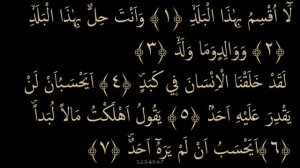 لَٓا اُقْسِمُ بِهٰذَا الْبَلَدِۙ ﴿١﴾ وَاَنْتَ حِلٌّ بِهٰذَا الْبَلَدِۙ
﴿٢﴾ وَوَالِدٍ وَمَا وَلَدَۙ ﴿٣﴾
لَقَدْ خَلَقْنَا الْاِنْسَانَ فٖي كَبَدٍۜ ﴿٤﴾ اَيَحْسَبُ اَنْ لَنْ
يَقْدِرَ عَلَيْهِ اَحَدٌۢ ﴿٥﴾ يَقُولُ اَهْلَكْتُ مَالاً لُبَداًۜ
﴿٦﴾ اَيَحْسَبُ اَنْ لَمْ يَرَهُٓ اَحَدٌۜ ﴿٧﴾
1-2-3-4-5-6-7